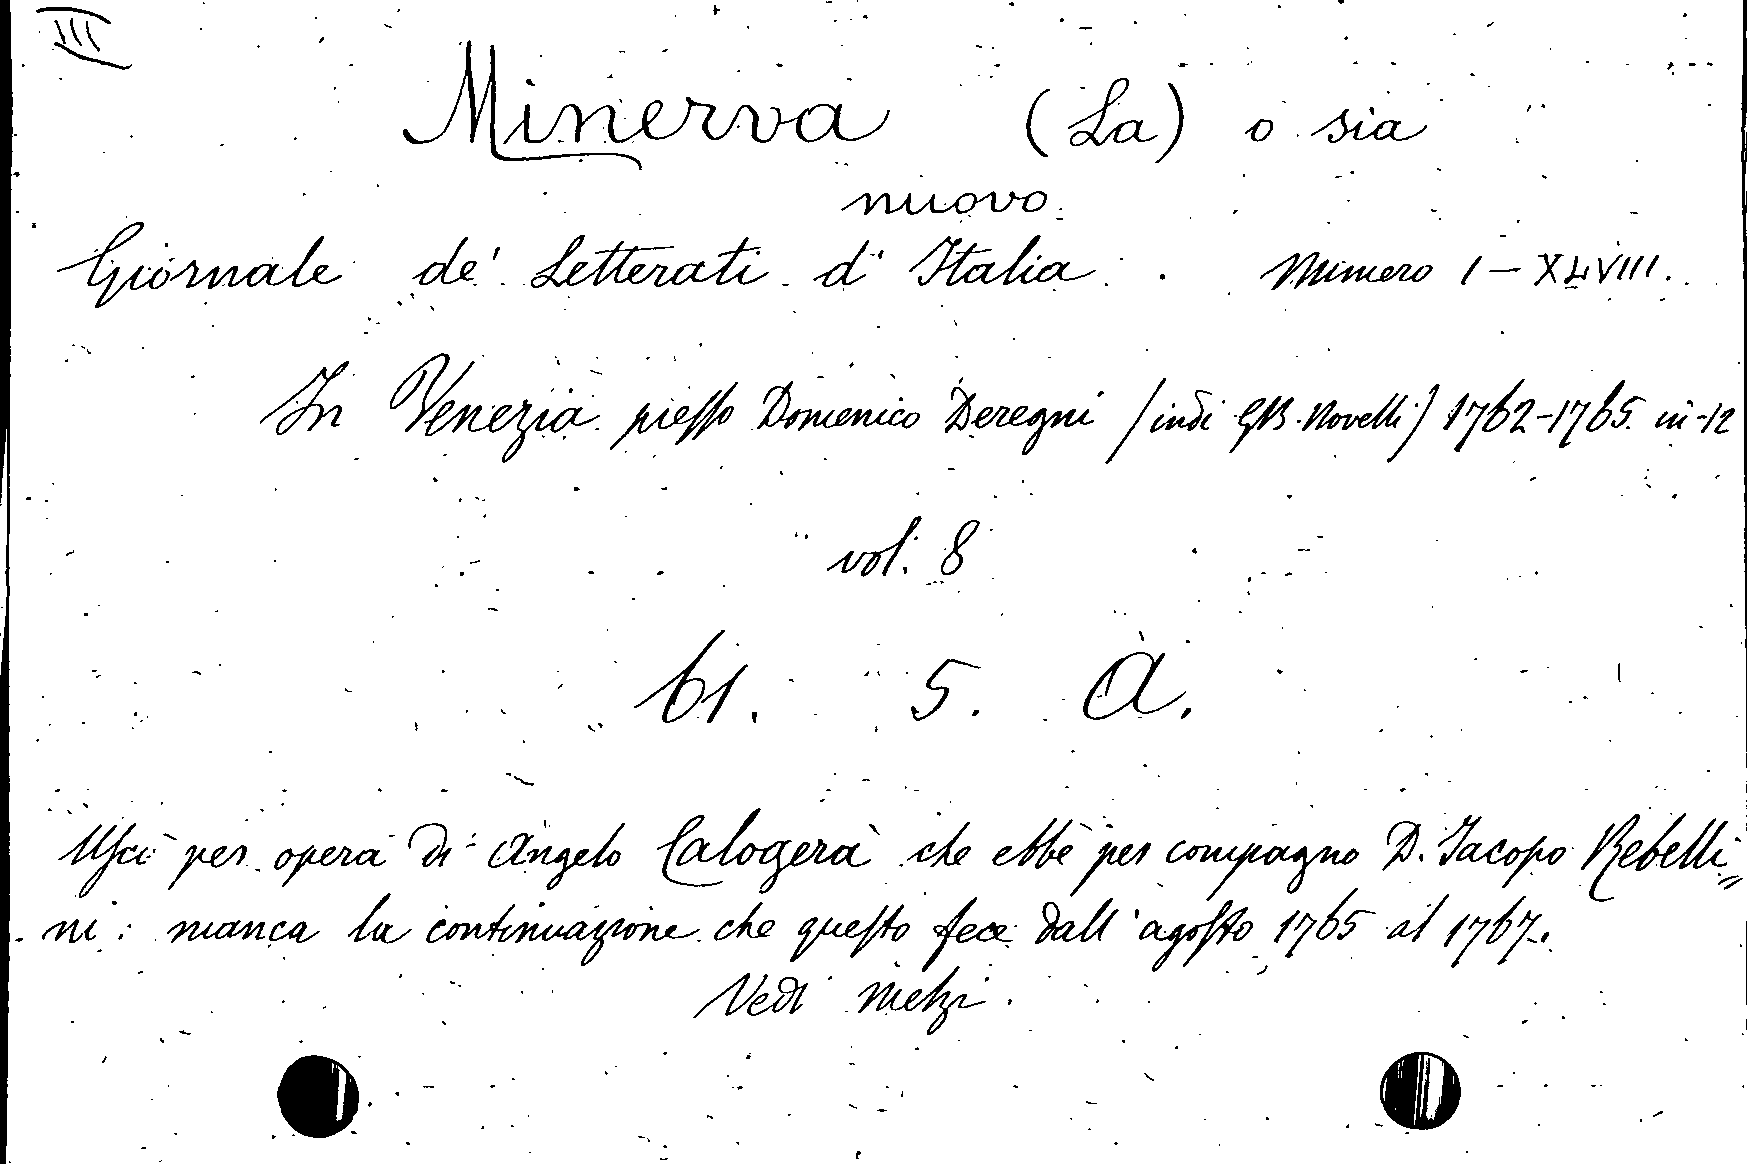 III
Minerva (La) o sia
nuovo
Giornale de' Letterati d' Italia. Numero I-XLVIII.
In Venezia presso Domenico Deregni (indi GB. Novelli) 1762-1765. in-12
vol. 8
61. 5. A.
Uscì per opera di Angelo Calogerà che ebbe per compagno D. Jacopo Rebelli=
ni: manca la continuazione che questo fece dall'agosto 1765 al 1767.
Vedi Melzi.